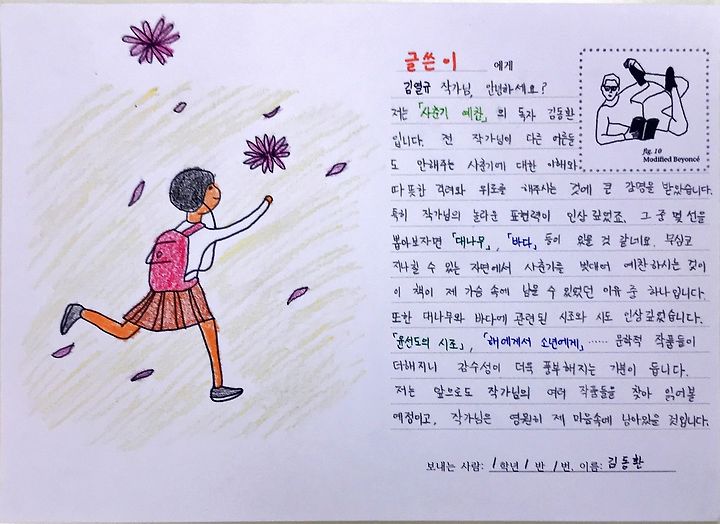 글쓴이 에게
김열규 작가님, 안녕하세요?
저는 「사춘기 예찬」의 독자 김동환
입니다. 전 작가님이 다른 어른들
도 안해주는 사춘기에 대한 이해와
따뜻한 격려와 위로를 해주시는 것에 큰 감명을 받았습니다.
특히 작가님의 놀라운 표현력이 인상 깊었죠. 그 중 몇 선을
뽑아보자면 「대나무」, 「바다」 등이 있을 것 같네요. 무심코
지나칠 수 있는 자연에서 사춘기를 빗대어 예찬하시는 것이
이 책이 제 가슴 속에 남을 수 있었던 이유 중 하나입니다.
또한 대나무와 바다에 관련된 시조와 시도 인상깊었습니다.
「윤선도의 시조」, 「해에게서 소년에게」…… 문학적 작품들이
더해지니 감수성이 더욱 풍부해지는 기분이 듭니다.
저는 앞으로도 작가님의 여러 작품들을 찾아 읽어볼
예정이고, 작가님은 영원히 제 마음속에 남아있을 것입니다.
보내는 사람: 1학년 1반 1번, 이름: 김동환
fig. 10
Modified Beyoncé